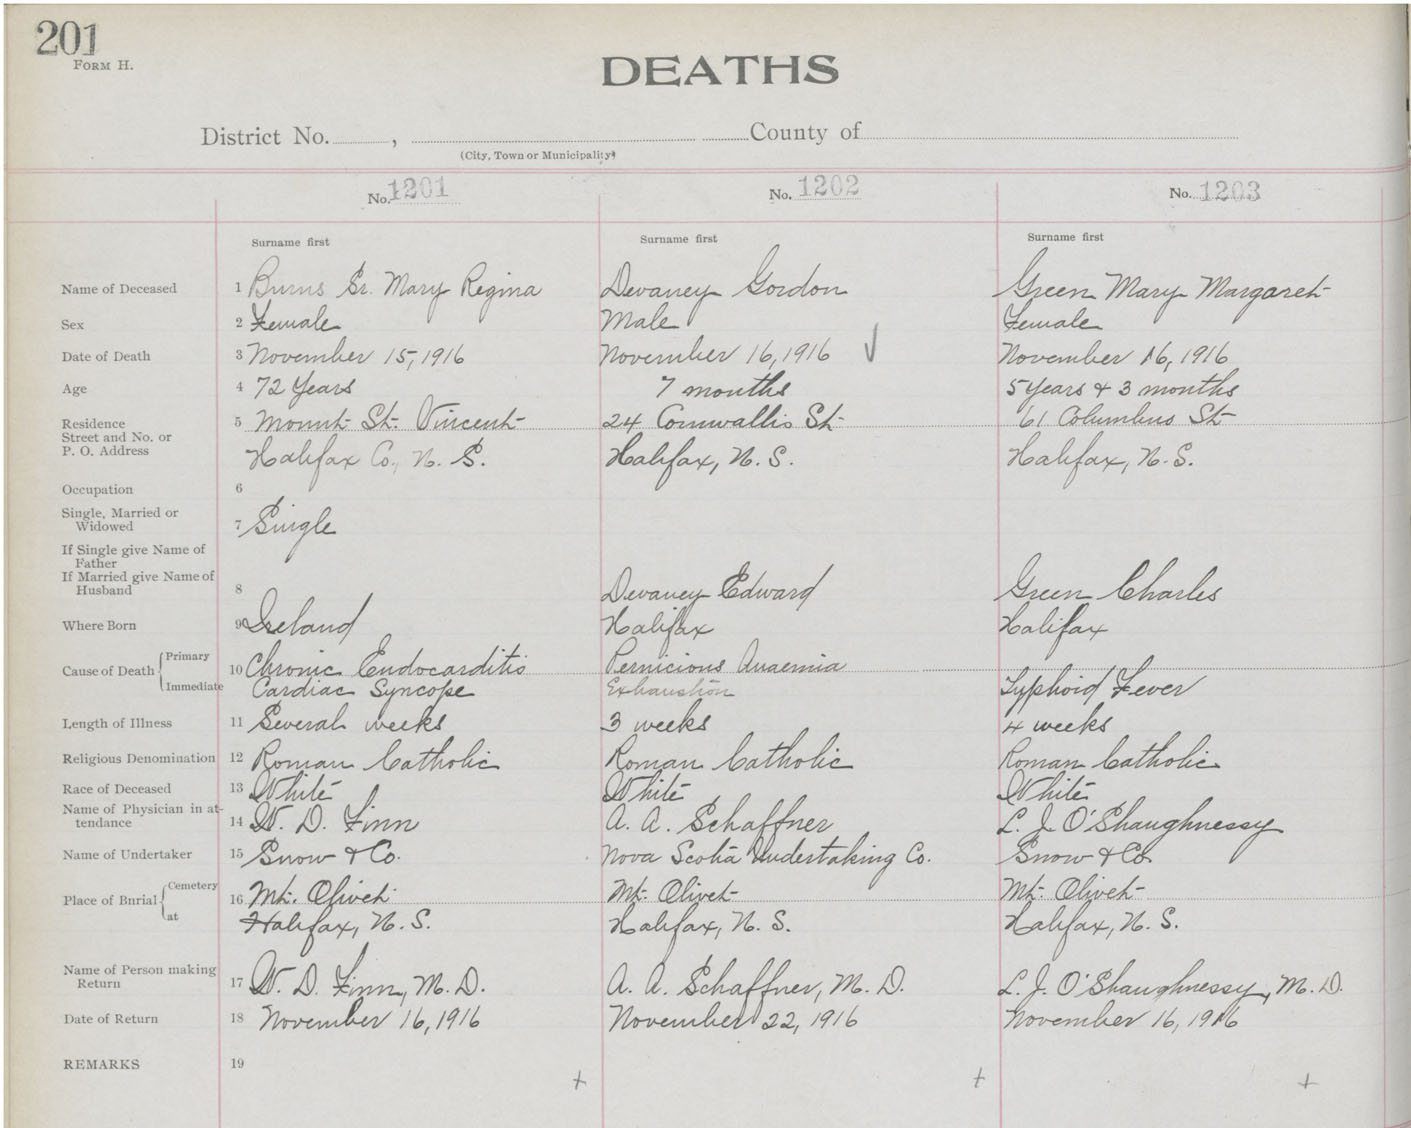 201
FORM H.
DEATHS
District No. , County of
(City, Town or Municipality)
No. 1201 No. 1202 No. 1203
Surname first Surname first Surname first
Name of Deceased 1 Burns Sr. Mary Regina Devaney Gordon Green Mary Margaret
Sex 2 Female Male Female
Date of Death 3 November 15, 1916 November 16, 1916 November 16, 1916
Age 4 72 Years 7 months 5 Years & 3 months
Residence 5 Mount St. Vincent 24 Cornwallis St. 61 Columbus St
Street and No. or
P. O. Address Halifax Co., N. S. Halifax, N. S. Halifax, N. S.
Occupation 6
Single, Married or
Widowed 7 Single
If Single give Name of
Father
If Married give Name of
Husband 8 Devaney Edward Green Charles
Where Born 9 Ireland Halifax Halifax
Cause of Death Primary 10 Chronic Endocarditis Pernicious Anaemia
Immediate Cardiac Syncope Exhaustion Typhoid Fever
Length of Illness 11 Several weeks 3 weeks 4 weeks
Religious Denomination 12 Roman Catholic Roman Catholic Roman Catholic
Race of Deceased 13 White White White
Name of Physician in at-
tendance 14 W. D. Finn A. A. Schaffner L. J. O'Shaughnessy
Name of Undertaker 15 Snow & Co. Nova Scotia Undertaking Co. Snow & Co
Place of Bnrial Cemetery 16 Mt. Olivet Mt. Olivet Mt. Olivet
at Halifax, N. S. Halifax, N. S. Halifax, N. S.
Name of Person making
Return 17 W. D. Finn, M. D. A. A. Schaffner, M. D. L. J. O'Shaughnessy, M. D.
Date of Return 18 November 16, 1916 November 22, 1916 November 16, 1916
REMARKS 19